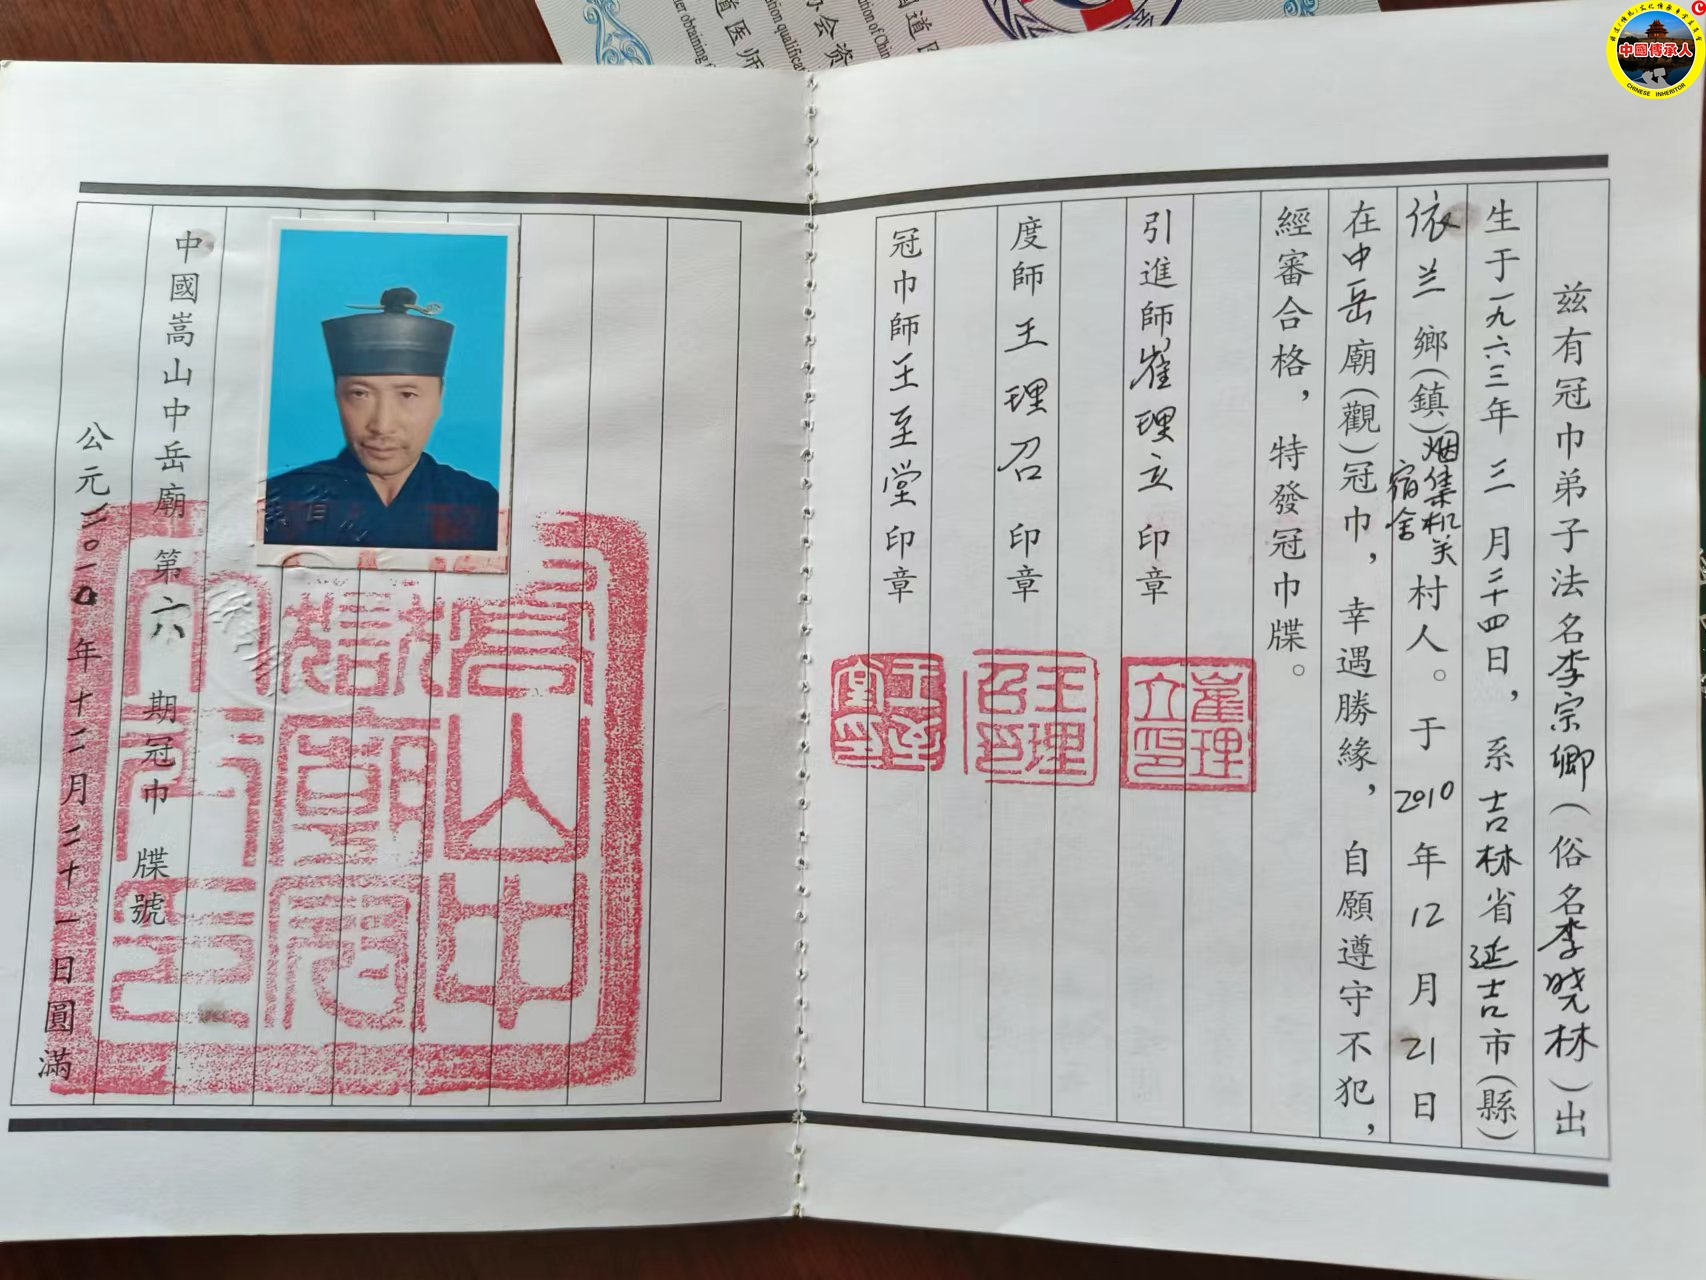 兹有冠巾弟子法名李宗卿（俗名李晓林）出
生于一九六三年三月二十四日，系吉林省延吉市(縣)
依兰鄉(鎮)烟集机关宿舍村人。于2010年12月21日
在中岳廟(觀)冠巾，幸遇勝緣，自願遵守不犯，
經審合格，特發冠巾牒。
引進師崔理立印章
崔理立印
度師王理召印章
王理召印
冠巾師王至堂印章
王至堂印
中國嵩山中岳廟第六期冠巾牒號
公元二〇一〇年十二月二十一日圓滿
嵩山中
道医师
协会资
国道医
tion of Chin
tion qualificat
ter obtaining
中國傳承人
CHINESE INHERITOR
C